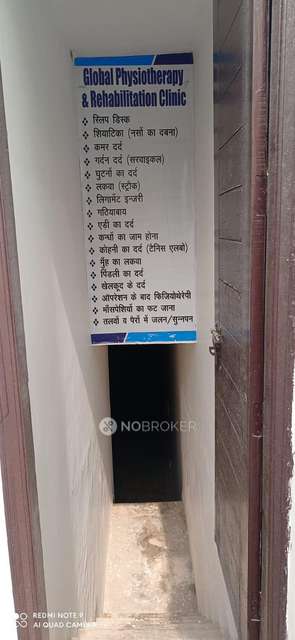 Global Physiotherapy
& Rehabilitation Clinic
❖ स्लिप डिस्क
❖ सियाटिका (नसों का दबना)
❖ कमर दर्द
❖ गर्दन दर्द (सरवाइकल)
❖ घुटनों का दर्द
❖ लकवा (स्ट्रोक)
❖ लिगामेंट इन्जरी
❖ गठियाबाय
❖ एडी का दर्द
❖ कन्धों का जाम होना
❖ कोहनी का दर्द (टेनिस एलबो)
❖ मुँह का लकवा
❖ पिंडली का दर्द
❖ खेलकूद के दर्द
❖ ऑपरेशन के बाद फिजियोथेरेपी
❖ माँसपेशियों का फट जाना
❖ तलवों व पैरों में जलन/सुन्नपन
NOBROKER
REDMI NOTE 9
AI QUAD CAMERA